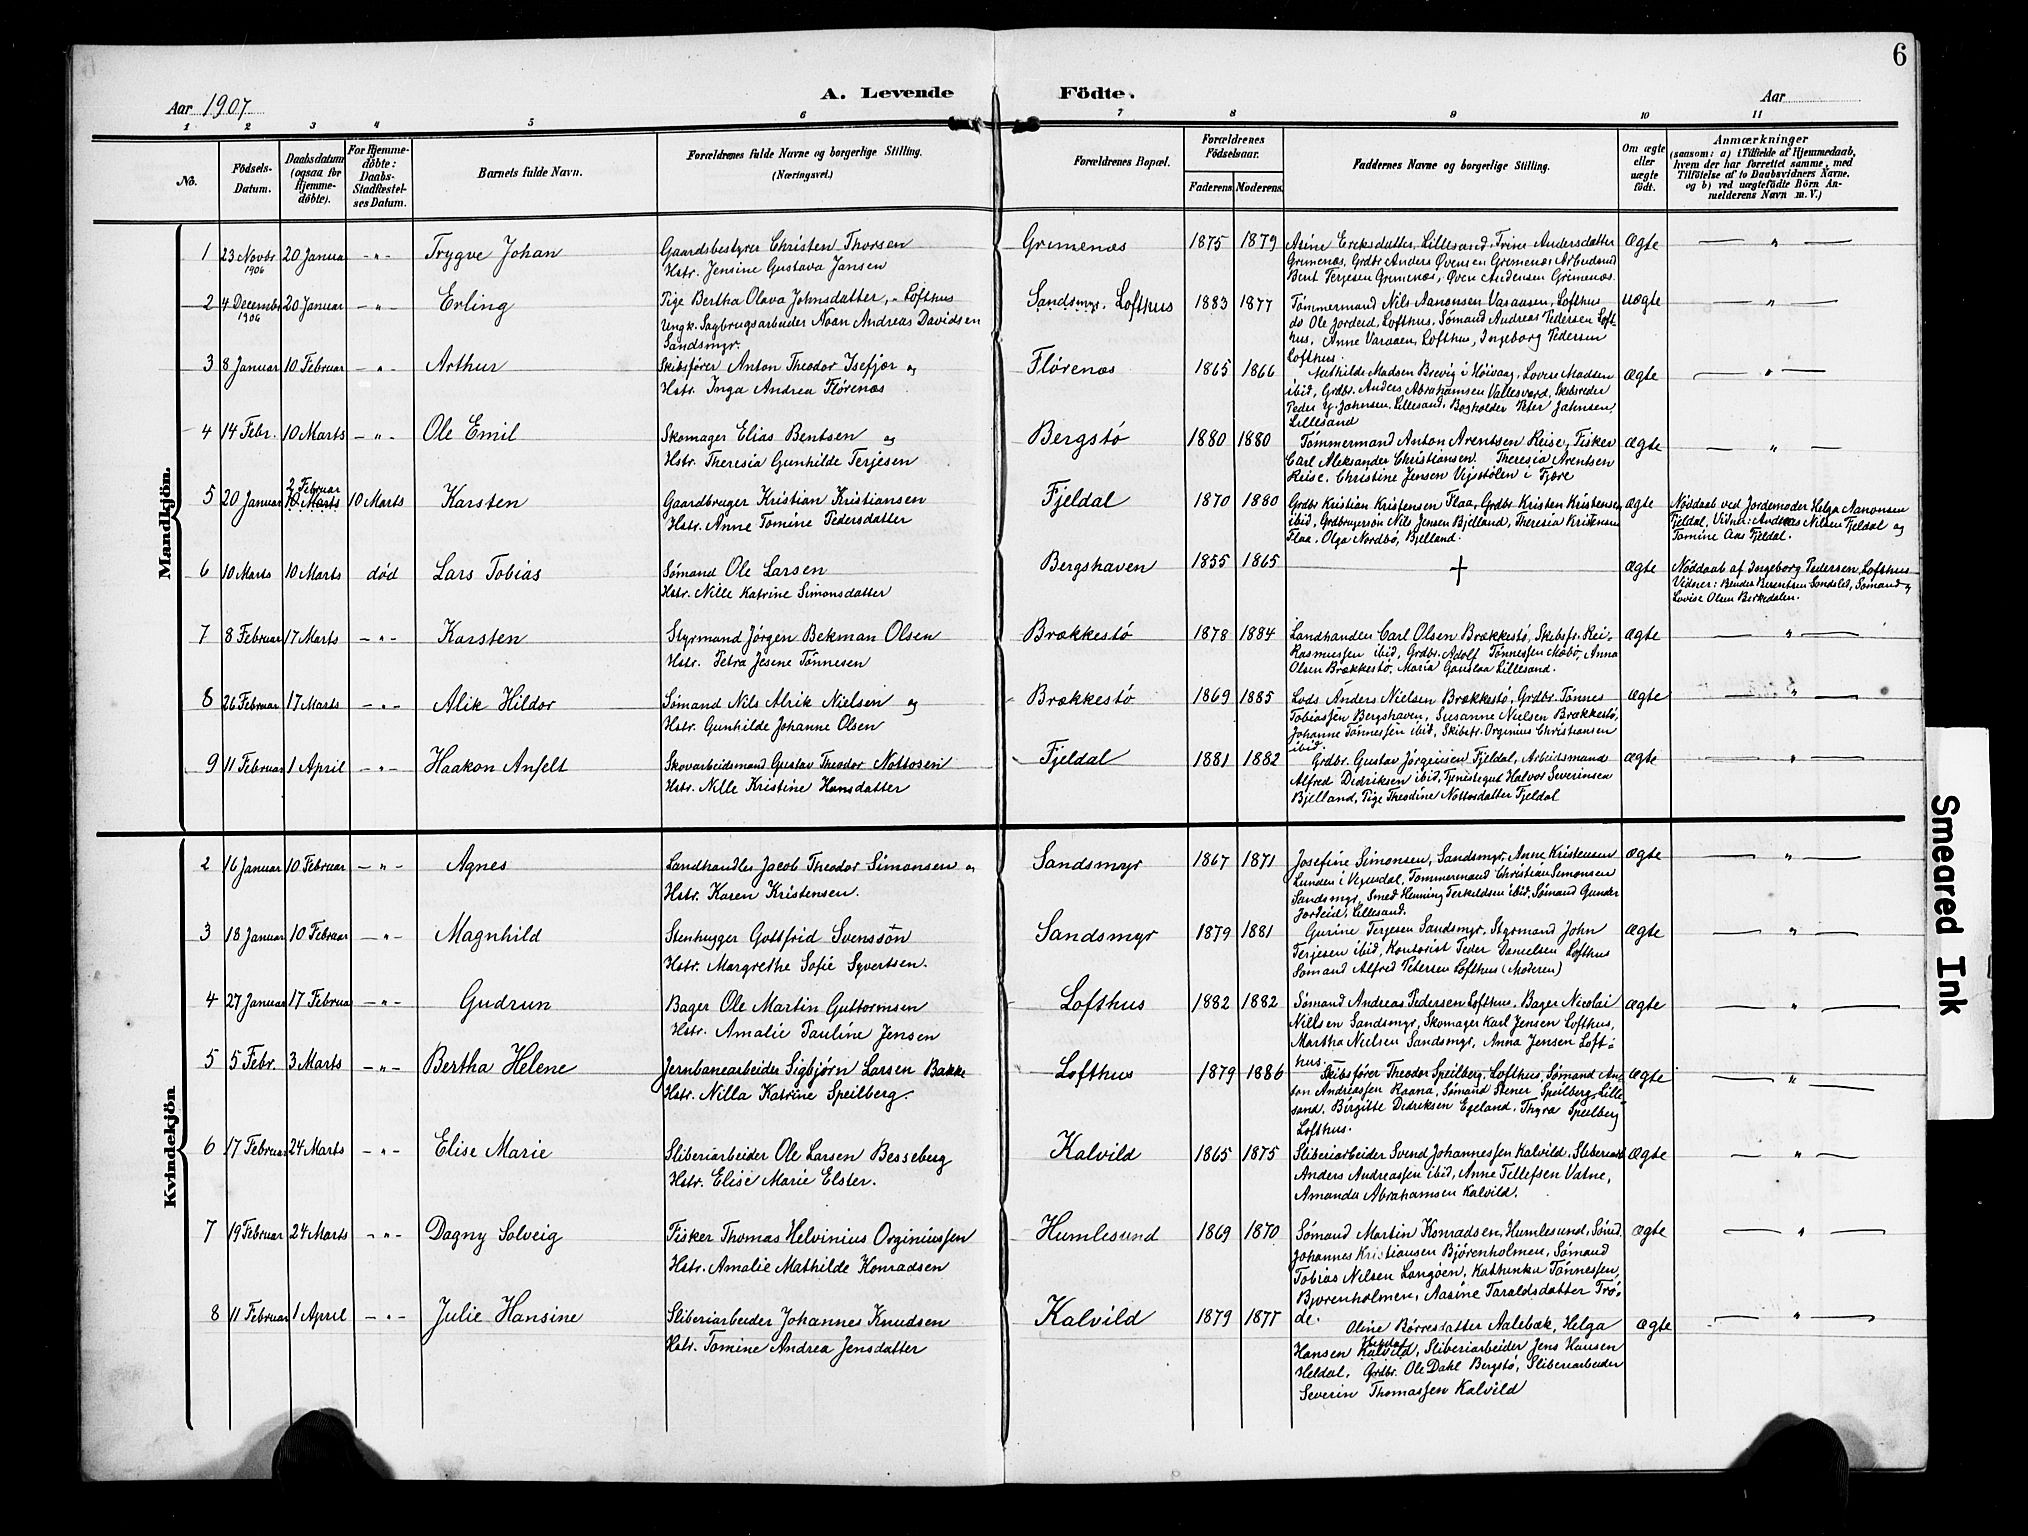 6
A. Levende Födte.
Aar 1907.
Aar
1 2 3 4 5 6 7 8 9 10 11
No.
Födsels-Datum.
Daabsdatum (ogsaa for Hjemme-døbte).
For Hjemme-døbte: Daabs-Stadfæstel-ses Datum.
Barnets fulde Navn.
Forældrenes fulde Navne og borgerlige Stilling. (Næringsvei.)
Forældrenes Bopæl.
Forældrenes Födselsaar.
Faderens. Moderens.
Faddernes Navne og borgerlige Stilling.
Om ægte eller uægte födt.
Anmærkninger
(saasom: a) i Tilfælde af Hjemmedaab,
hvem der har forrettet samme, med
Tilföielse af to Daabsvidners Navne.
og b) ved uægtefödte Börn An-
melderens Navn m. V.)
Mandkjön.
1 23 Novbr 1906 20 Januar — " — Trygve Johan
Gaardsbestyrer Christen Thorsen
Hstr. Jensine Gustava Jansen
Grimenæs 1875 1879
Asine Eriksdatter, Lillesand, Trine Andersdatter
Grimenæs, Grdbr Anders Øvensen Grimenæs Arbeidsmd
Bent Terjesen Grimenæs, Øven Andersen Grimenæs.
Ægte — " —
2 4 Decembr 1906 20 Januar — " — Erling
Pige Bertha Olava Johnsdatter, Lofthus
Ungk. Sagbrugsarbeider Noan Andreas Davidsen
Sandsmyr.
Sandsmyr, Lofthus 1883 1877
Tømmermand Nils Aanonsen Varaasen, Lofthus
do Ole Jorderd, Lofthus, Sømand Andreas Pedersen Loft-
hus, Anne Varaaen, Lofthus, Ingeborg Pedersen
Lofthus.
uægte — " —
3 8 Januar 10 Februar — " — Arthur
Skibsfører Anton Theodor Isefjær og
Hstr. Inga Andrea Flørenæs
Flørenæs 1865 1866
Mathilde Madsen Brevig i Høivaag, Lovise Madsen
ibid, Grdbr. Anders Abrahamsen Vallesværd, Skibsreder
Peder G. Johnsen, Lillesand, Bogholder Peter Jahnsen,
Lillesand
ægte — " —
4 14 Febr. 10 Marts — " — Ole Emil
Skomager Elias Bentsen og
Hstr. Theresia Gunhilde Terjesen
Bergstø 1880 1880
Tømmermand Anton Arentsen Reise, Fisker
Carl Aleksander Christiansen. Theresia Arentsen
Reise, Christine Jensen Vigstølen i Fjære
ægte — " —
5 20 Januar 2 Februar 10 Marts 10 Marts Karsten
Gaardbruger Kristian Kristiansen
Hstr. Anne Tomine Pedersdatter
Fjeldal 1870 1880
Grdbr Kristian Kristensen Flaa, Grdbr Kristen Kristensen
ibid, Grdbrugersøn Nils Jensen Bjelland, Theresia Kristensen
Flaa, Olga Nordbø, Bjelland.
ægte
Nøddaab ved Jordemoder Helga Aanonsen
Fjeldal, Vidner: Andreas Nilsen Fjeldal og
Tomine Aas Fjeldal.
6 10 Marts 10 Marts død Lars Tobias
Sømand Ole Larsen
Hstr. Nille Katrine Simonsdatter
Bergshaven 1855 1865
+
ægte
Nøddaab af Ingeborg Pedersen, Lofthus
Vidner: Bendix Berentsen Sandslid, Sømand og
Lovise Olsen Birkedalen.
7 8 Februar 17 Marts — " — Karsten
Styrmand Jørgen Bekman Olsen
Hstr. Petra Jesine Tønnesen
Brækkestø 1878 1884
Landhandler Carl Olsen Brækkestø, Skibsfr. Rei-
Rasmussen ibid, Grdbr. Adolf Tønnessen Møbø, Anna
Olsen Brækkestø, Maria Gauslaa Lillesand.
Ægte — " —
8 26 Februar 17 Marts — " — Alik Hildor
Sømand Nils Alrik Nielsen og
Hstr. Gunhilde Johanne Olsen
Brækkestø 1869 1885
Lods Anders Nielsen Brækkestø, Grdbr. Tønnes
Tobiassen Bergshaven, Susanne Nielsen Brækkestø,
Johanne Tønnessen ibid, Skibsfr. Orginius Christiansen
ibid.
Ægte — " —
9 11 Februar 1 April — " — Haakon Anfelt
Skovarbeidsmand Gustav Theodor Nottosen
Hstr. Nille Kristine Hansdatter
Fjeldal 1881 1882
Grdbr. Gustav Jørgensen Fjeldal, Arbeidsmand
Alfred Didriksen ibid, Tjenistegut Halvor Severinsen
Bjelland, Pige Theodine Nottosdatter Fjeldal
ægte — " —
Kvindekjön
2 16 Januar 10 Februar — " — Agnes
Landhandler Jacob Theodor Simonsen og
Hstr. Karen Kristensen.
Sandsmyr 1867 1871
Josefine Simonsen, Sandsmyr, Anne Kristensen
Lunden i Vegusdal, Tømmermand Christian Simonsen
Sandsmyr, Smed Henning Terkildsen ibid, Sømand Gunder
Jordeid, Lillesand.
Ægte — " —
3 18 Januar 10 Februar — " — Magnhild
Stenhugger Gottfrid Svenssön
Hstr. Margrethe Sofie Syvertsen.
Sandsmyr 1879 1881
Gurine Terjesen Sandsmyr, Styrmand John
Terjesen ibid, Kontorist Peder Danielsen Lofthus
Sømand Alfred Petersen Lofthus (Moderen)
Ægte — " —
4 27 Januar 17 Februar — " — Gudrun
Bager Ole Martin Guttormsen
Hstr. Amalie Pauline Jensen
Lofthus 1882 1882
Sømand Andreas Pedersen Lofthus, Bager Nicolai
Nielsen Sandsmyr, Skomager Karl Jensen Lofthus,
Martha Nielsen Sandsmyr, Anna Jensen Loft-
hus.
Ægte — " —
5 5 Febr. 3 Marts — " — Bertha Helene
Jernbanearbeider Sigbjørn Larsen Bakke
Hstr. Nilla Katrine Speilberg.
Lofthus 1879 1886
Skibsfører Theodor Speilberg, Lofthus, Sømand An-
ton Andreassen Raana, Sømand Stener Speilberg, Lille-
sand, Birgitte Didriksen Egeland, Thyra Speilberg
Lofthus.
Ægte — " —
6 17 Februar 24 Marts — " — Elise Marie
Sliberiarbeider Ole Larsen Besseberg
Hstr. Elise Marie Elster.
Kalvild 1865 1875
Sliberiarbeider Svend Johannessen Kalvild, Sliberiarb
Anders Andreassen ibid, Anne Tellefsen Vatne,
Amanda Abrahamsen Kalvild.
Ægte — " —
7 19 Februar 24 Marts — " — Dagny Solveig
Fisker Thomas Helvinius Orginiussen
Hstr. Amalie Mathilde Konradsen
Humlesund 1869 1870
Sømand Martin Konradsen, Humlesund, Sømd.
Johannes Kristiansen Bjørenholmen, Sømand
Tobias Nilsen Langøen, Kathinka Tønnessen
Bjørenholmen, Aasine Taraldsdatter Trø-
de.
Ægte — " —
8 11 Februar 1 April — " — Julie Hansine
Sliberiarbeider Johannes Knudsen
Hstr. Tomine Andrea Jensdatter
Kalvild 1879 1877
Oline Børresdatter Aalebæk, Helga
Hansen Kalvild, Sliberiarbeider Jens Hansen
Heldal, Grdbr. Ole Dahl Bergstø, Sliberiarbeider
Severin Thomassen Kalvild
Ægte — " —
Smeared Ink